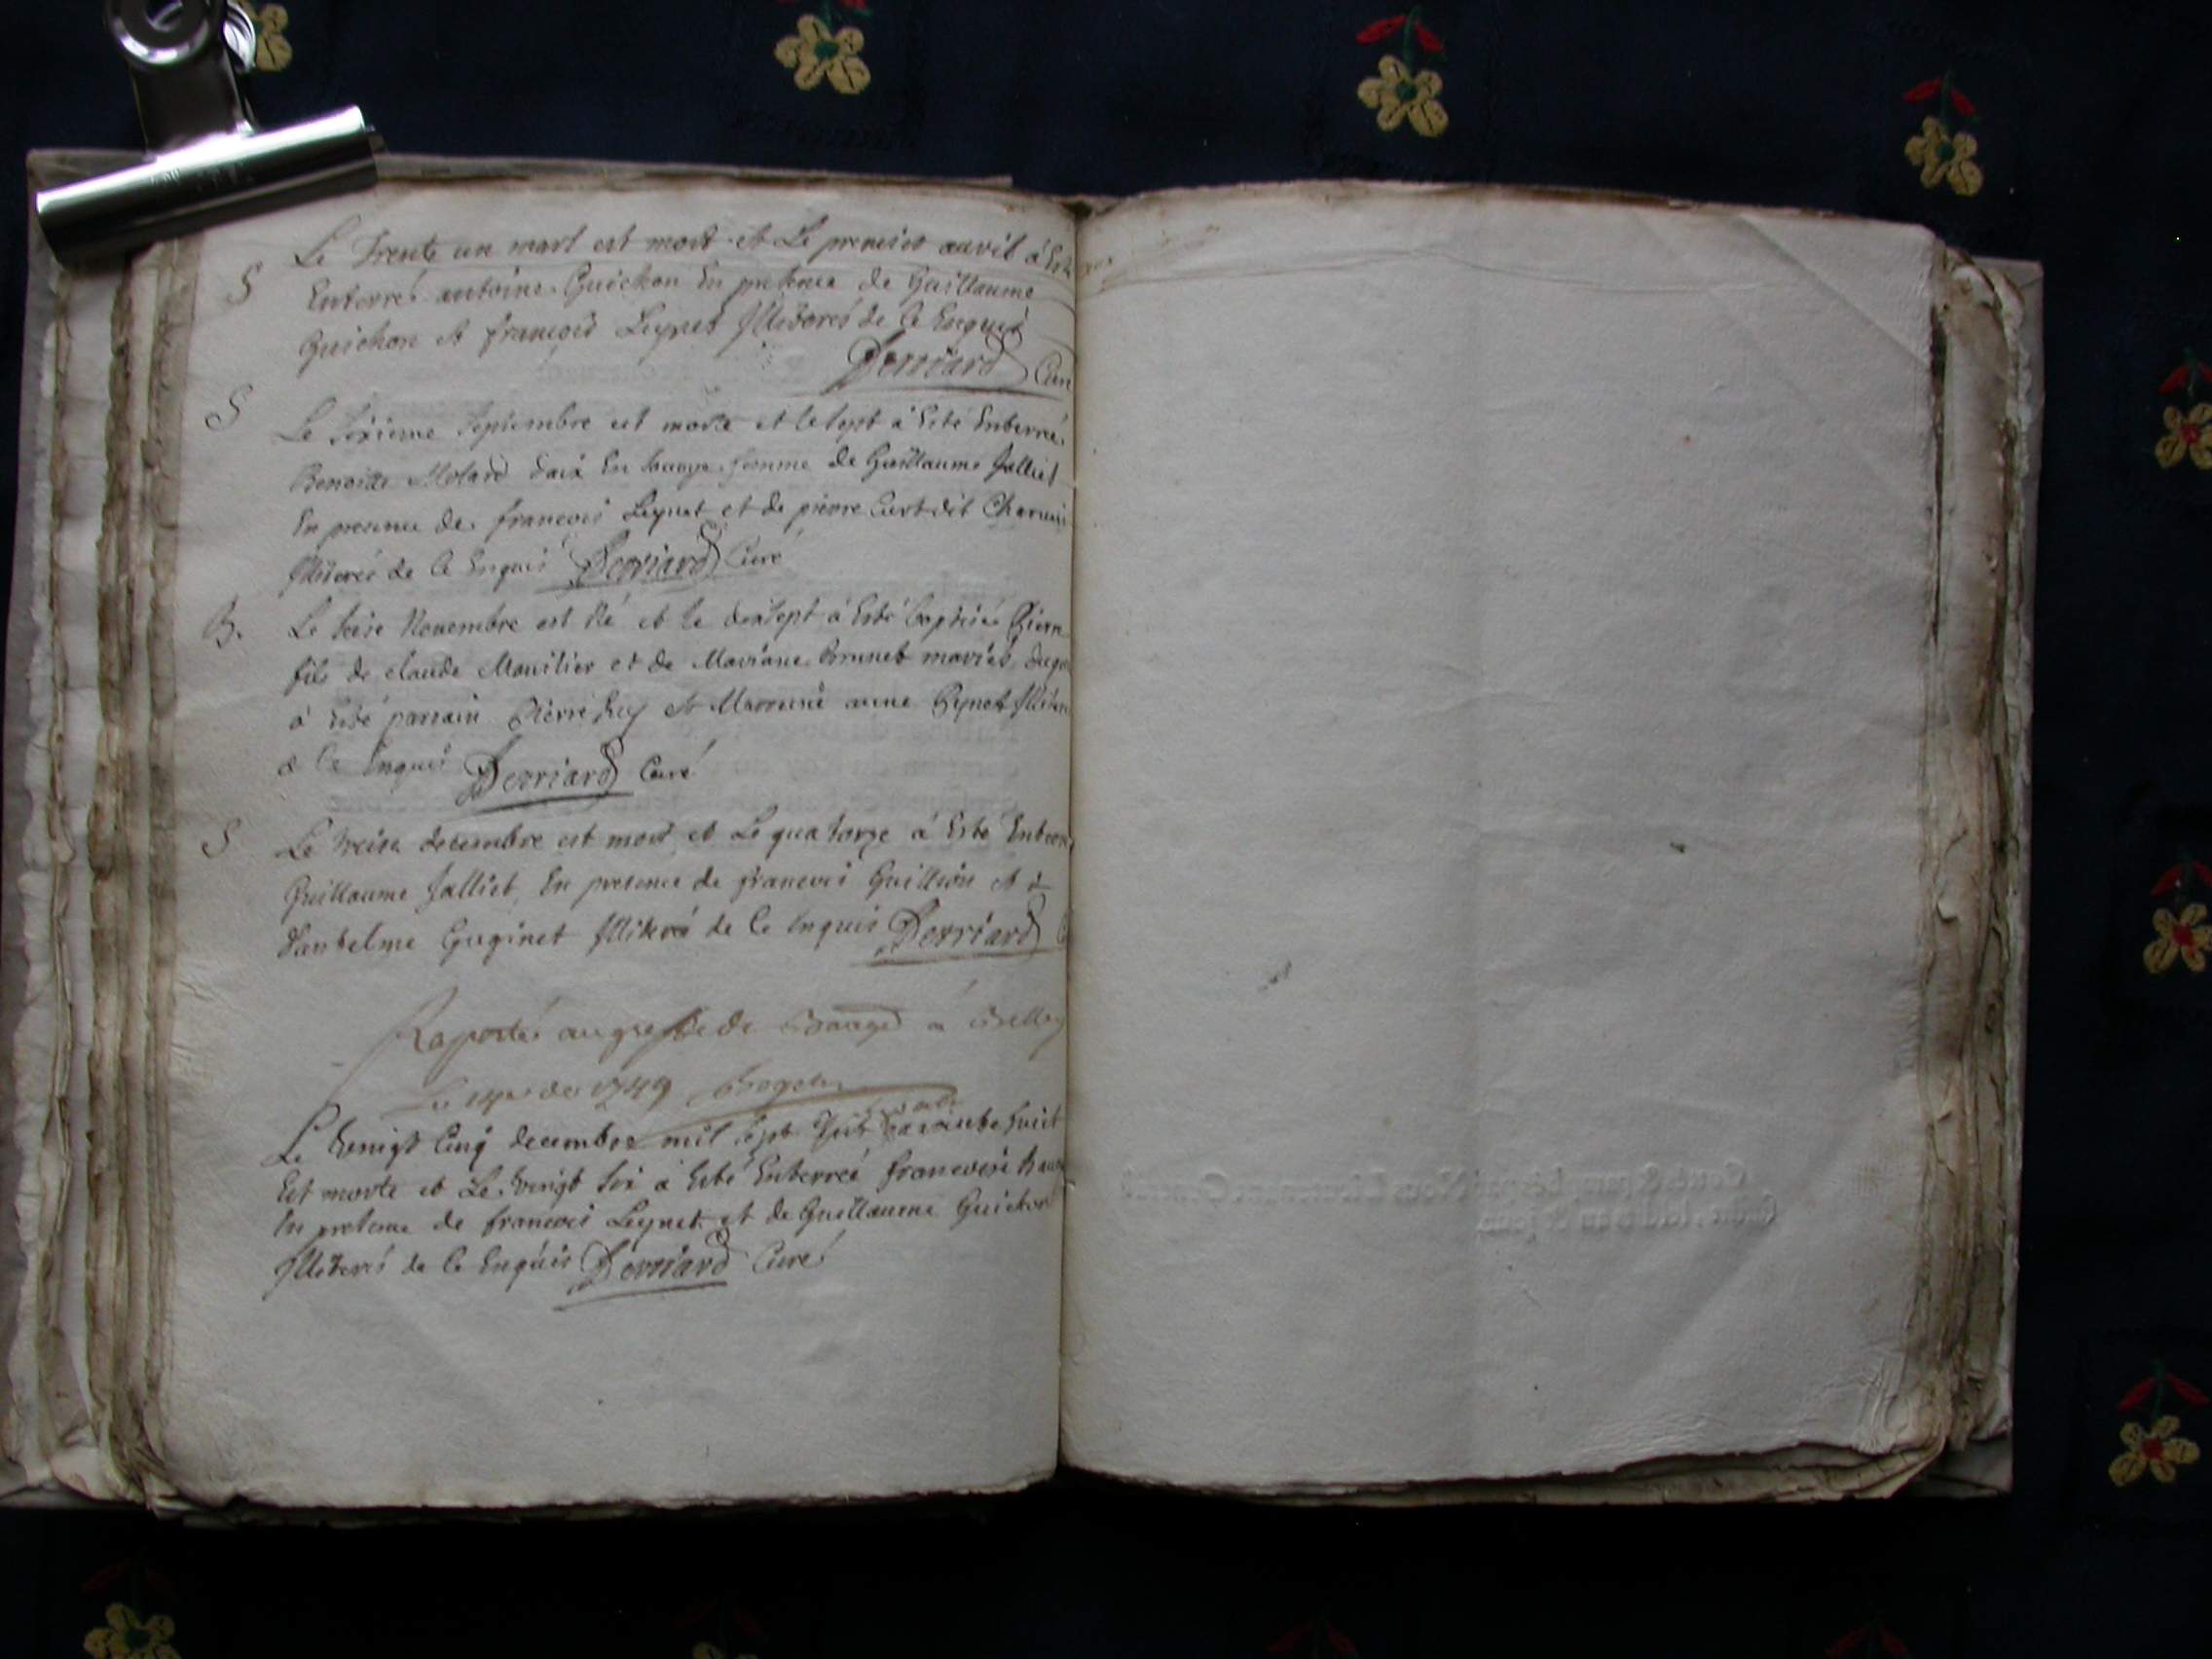 Le Trente un mars est mort et Le premier avril à Esté
S Enterré antoine Guichon En presence de Guillaume
Guichon et françois Leynet Illiterés de Ce Enquis
Derriard Curé
S Le sixieme septembre est morte et le sept à Esté Enterré
Benoitte Molard daix En Savoye femme de Guillaume Jalliet
En presence de françois Leynet et de pierre Curt dit Charvin
Illiterés de Ce Enquis Derriard Curé
B. Le seise Novembre est Né et le dixsept à Esté baptisé Pierre
fils de claude Monilier et de Mariane Brunet mariés duquel
à Esté parrain Pierre et Marraine anne Reynet Illiterés
de Ce Enquis Derriard Curé
S Le treise decembre est mort et Le quatorze à Esté Enterré
Guillaume Jalliet En presence de françois Guillion et de
dantelme Guginet Illiteré de Ce Enquis Derriard
Raporté au greffe de à Belley
Le de 1749
Le vingt Cinq decembre mil sept Cent quarante huit
Est morte et Le vingt six à Esté Enterreé françoise
En presence de françois Leynet et de Guillaume Guichon
Illiterés de Ce Enquis Derriard Curé